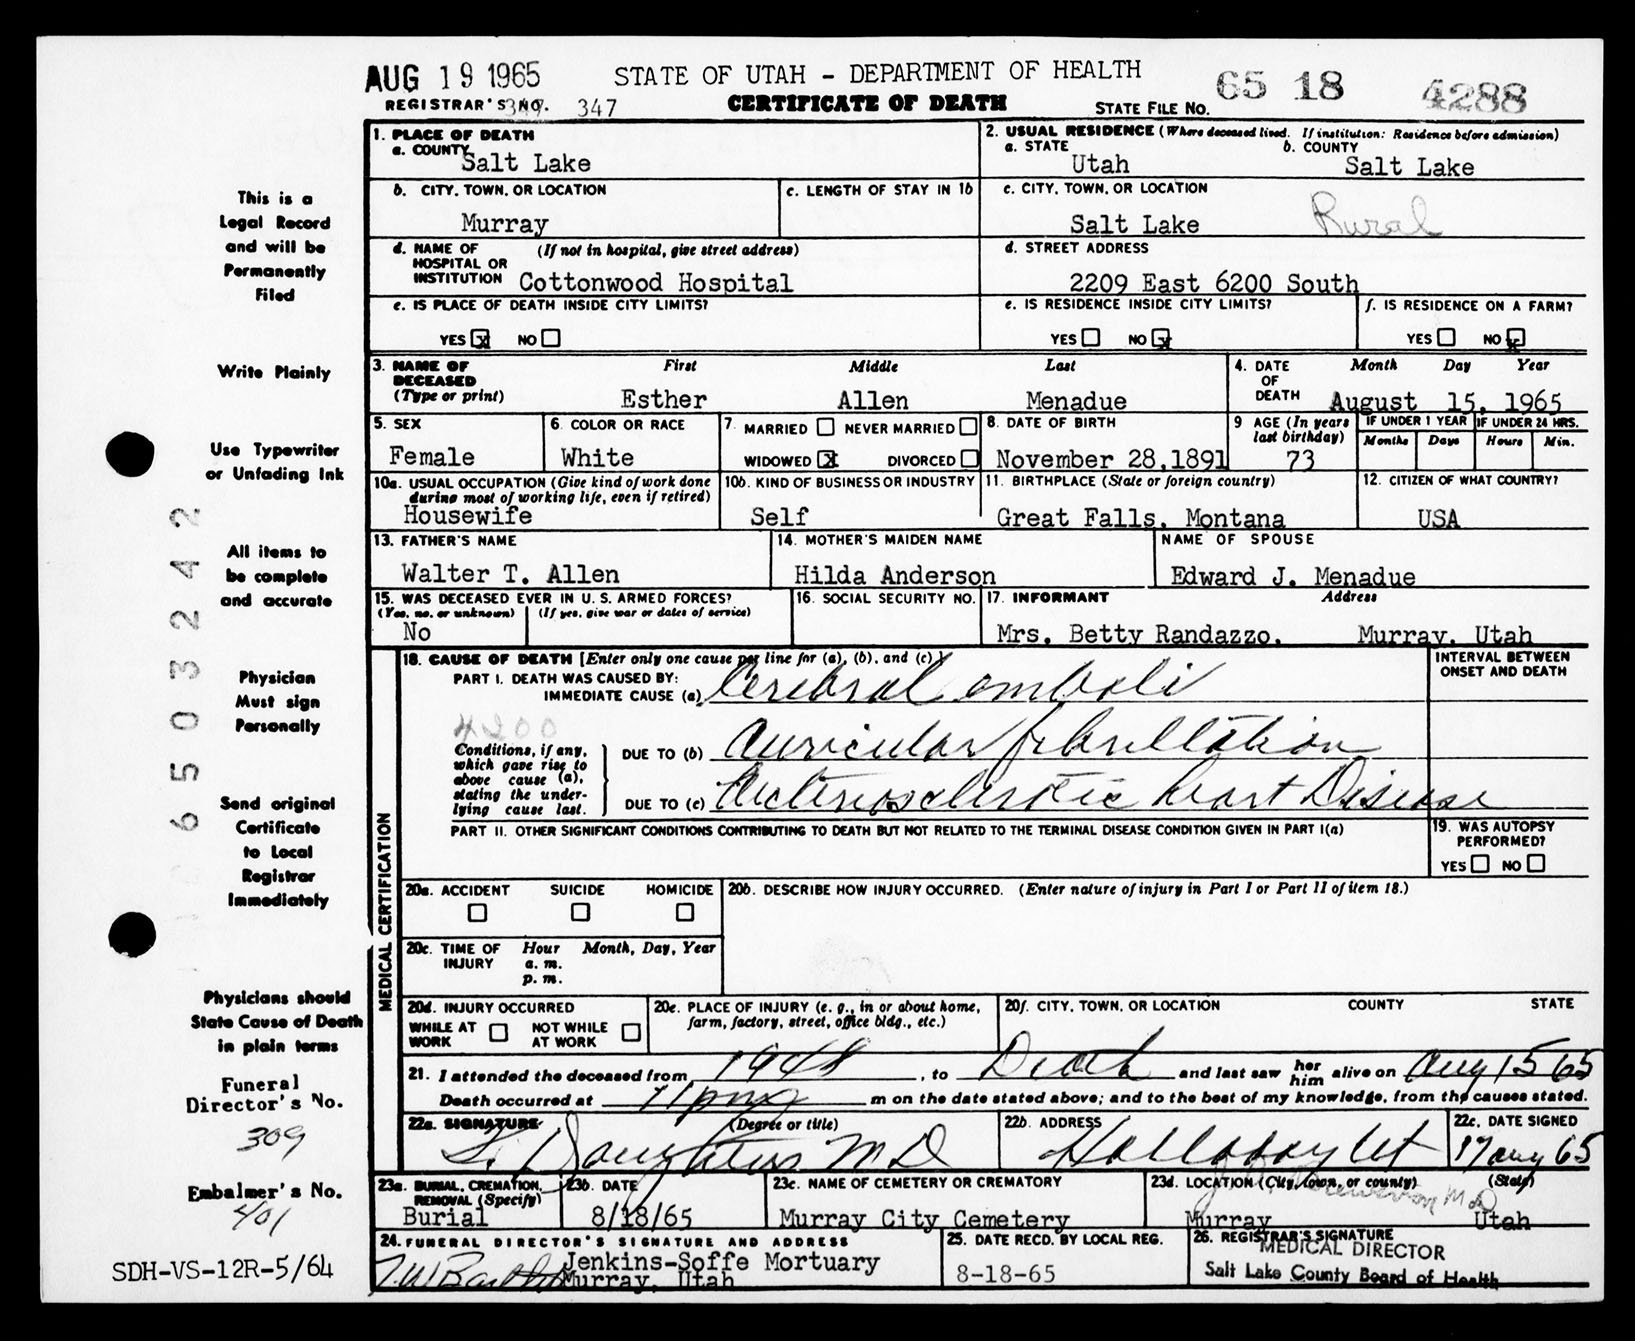 AUG 19 1965 STATE OF UTAH – DEPARTMENT OF HEALTH 65 18 4288
REGISTRAR'S NO. 347 CERTIFICATE OF DEATH STATE FILE NO.
1. PLACE OF DEATH
a. COUNTY Salt Lake
2. USUAL RESIDENCE (Where deceased lived. If institution: Residence before admission)
a. STATE Utah b. COUNTY Salt Lake
b. CITY, TOWN, OR LOCATION Murray
c. LENGTH OF STAY IN 1b
c. CITY, TOWN, OR LOCATION Salt Lake Rural
d. NAME OF HOSPITAL OR INSTITUTION (If not in hospital, give street address) Cottonwood Hospital
d. STREET ADDRESS 2209 East 6200 South
e. IS PLACE OF DEATH INSIDE CITY LIMITS? YES x NO
e. IS RESIDENCE INSIDE CITY LIMITS? YES NO x
f. IS RESIDENCE ON A FARM? YES NO x
3. NAME OF DECEASED (Type or print) First Middle Last
Esther Allen Menadue
4. DATE OF DEATH Month Day Year
August 15, 1965
5. SEX Female
6. COLOR OR RACE White
7. MARRIED NEVER MARRIED
WIDOWED x DIVORCED
8. DATE OF BIRTH November 28,1891
9 AGE (In years last birthday) 73
IF UNDER 1 YEAR Months Days
IF UNDER 24 HRS. Hours Min.
10a. USUAL OCCUPATION (Give kind of work done during most of working life, even if retired) Housewife
10b. KIND OF BUSINESS OR INDUSTRY Self
11. BIRTHPLACE (State or foreign country) Great Falls, Montana
12. CITIZEN OF WHAT COUNTRY? USA
13. FATHER'S NAME Walter T. Allen
14. MOTHER'S MAIDEN NAME Hilda Anderson
NAME OF SPOUSE Edward J. Menadue
15. WAS DECEASED EVER IN U.S. ARMED FORCES?
(Yes, no, or unknown) (If yes, give war or dates of service)
No
16. SOCIAL SECURITY NO.
17. INFORMANT Address
Mrs. Betty Randazzo, Murray, Utah
MEDICAL CERTIFICATION
18. CAUSE OF DEATH [Enter only one cause per line for (a), (b), and (c)]
INTERVAL BETWEEN ONSET AND DEATH
PART I. DEATH WAS CAUSED BY:
IMMEDIATE CAUSE (a) Cerebral emboli
4200
Conditions, if any, which gave rise to above cause (a), stating the underlying cause last.
DUE TO (b) Auricular fibrillation
DUE TO (c) Arteriosclerotic heart Disease
PART II. OTHER SIGNIFICANT CONDITIONS CONTRIBUTING TO DEATH BUT NOT RELATED TO THE TERMINAL DISEASE CONDITION GIVEN IN PART I(a)
19. WAS AUTOPSY PERFORMED? YES NO
20a. ACCIDENT SUICIDE HOMICIDE
20b. DESCRIBE HOW INJURY OCCURRED. (Enter nature of injury in Part I or Part II of item 18.)
20c. TIME OF INJURY Hour Month, Day, Year
a. m.
p. m.
20d. INJURY OCCURRED
WHILE AT WORK NOT WHILE AT WORK
20e. PLACE OF INJURY (e. g., in or about home, farm, factory, street, office bldg., etc.)
20f. CITY, TOWN, OR LOCATION COUNTY STATE
21. I attended the deceased from 1948, to Death and last saw her him alive on Aug 15 65
Death occurred at 11pm m on the date stated above; and to the best of my knowledge, from the causes stated.
22a. SIGNATURE (Degree or title) L. Daughters MD
22b. ADDRESS Holladay Ut
22c. DATE SIGNED 17 Aug 65
23a. BURIAL, CREMATION, REMOVAL (Specify) Burial
23b. DATE 8/18/65
23c. NAME OF CEMETERY OR CREMATORY Murray City Cemetery
23d. LOCATION (City, town, or county) (State)
Murray Utah
24. FUNERAL DIRECTOR'S SIGNATURE AND ADDRESS
Jenkins-Soffe Mortuary
Murray, Utah
25. DATE RECD. BY LOCAL REG. 8-18-65
26. REGISTRAR'S SIGNATURE
MEDICAL DIRECTOR
Salt Lake County Board of Health
This is a
Legal Record
and will be
Permanently
Filed
Write Plainly
Use Typewriter
or Unfading Ink
All items to
be complete
and accurate
Physician
Must sign
Personally
Send original
Certificate
to Local
Registrar
Immediately
Physicians should
State Cause of Death
in plain terms
Funeral
Director's No.
309
Embalmer's No.
401
SDH-VS-12R-5/64
6503242